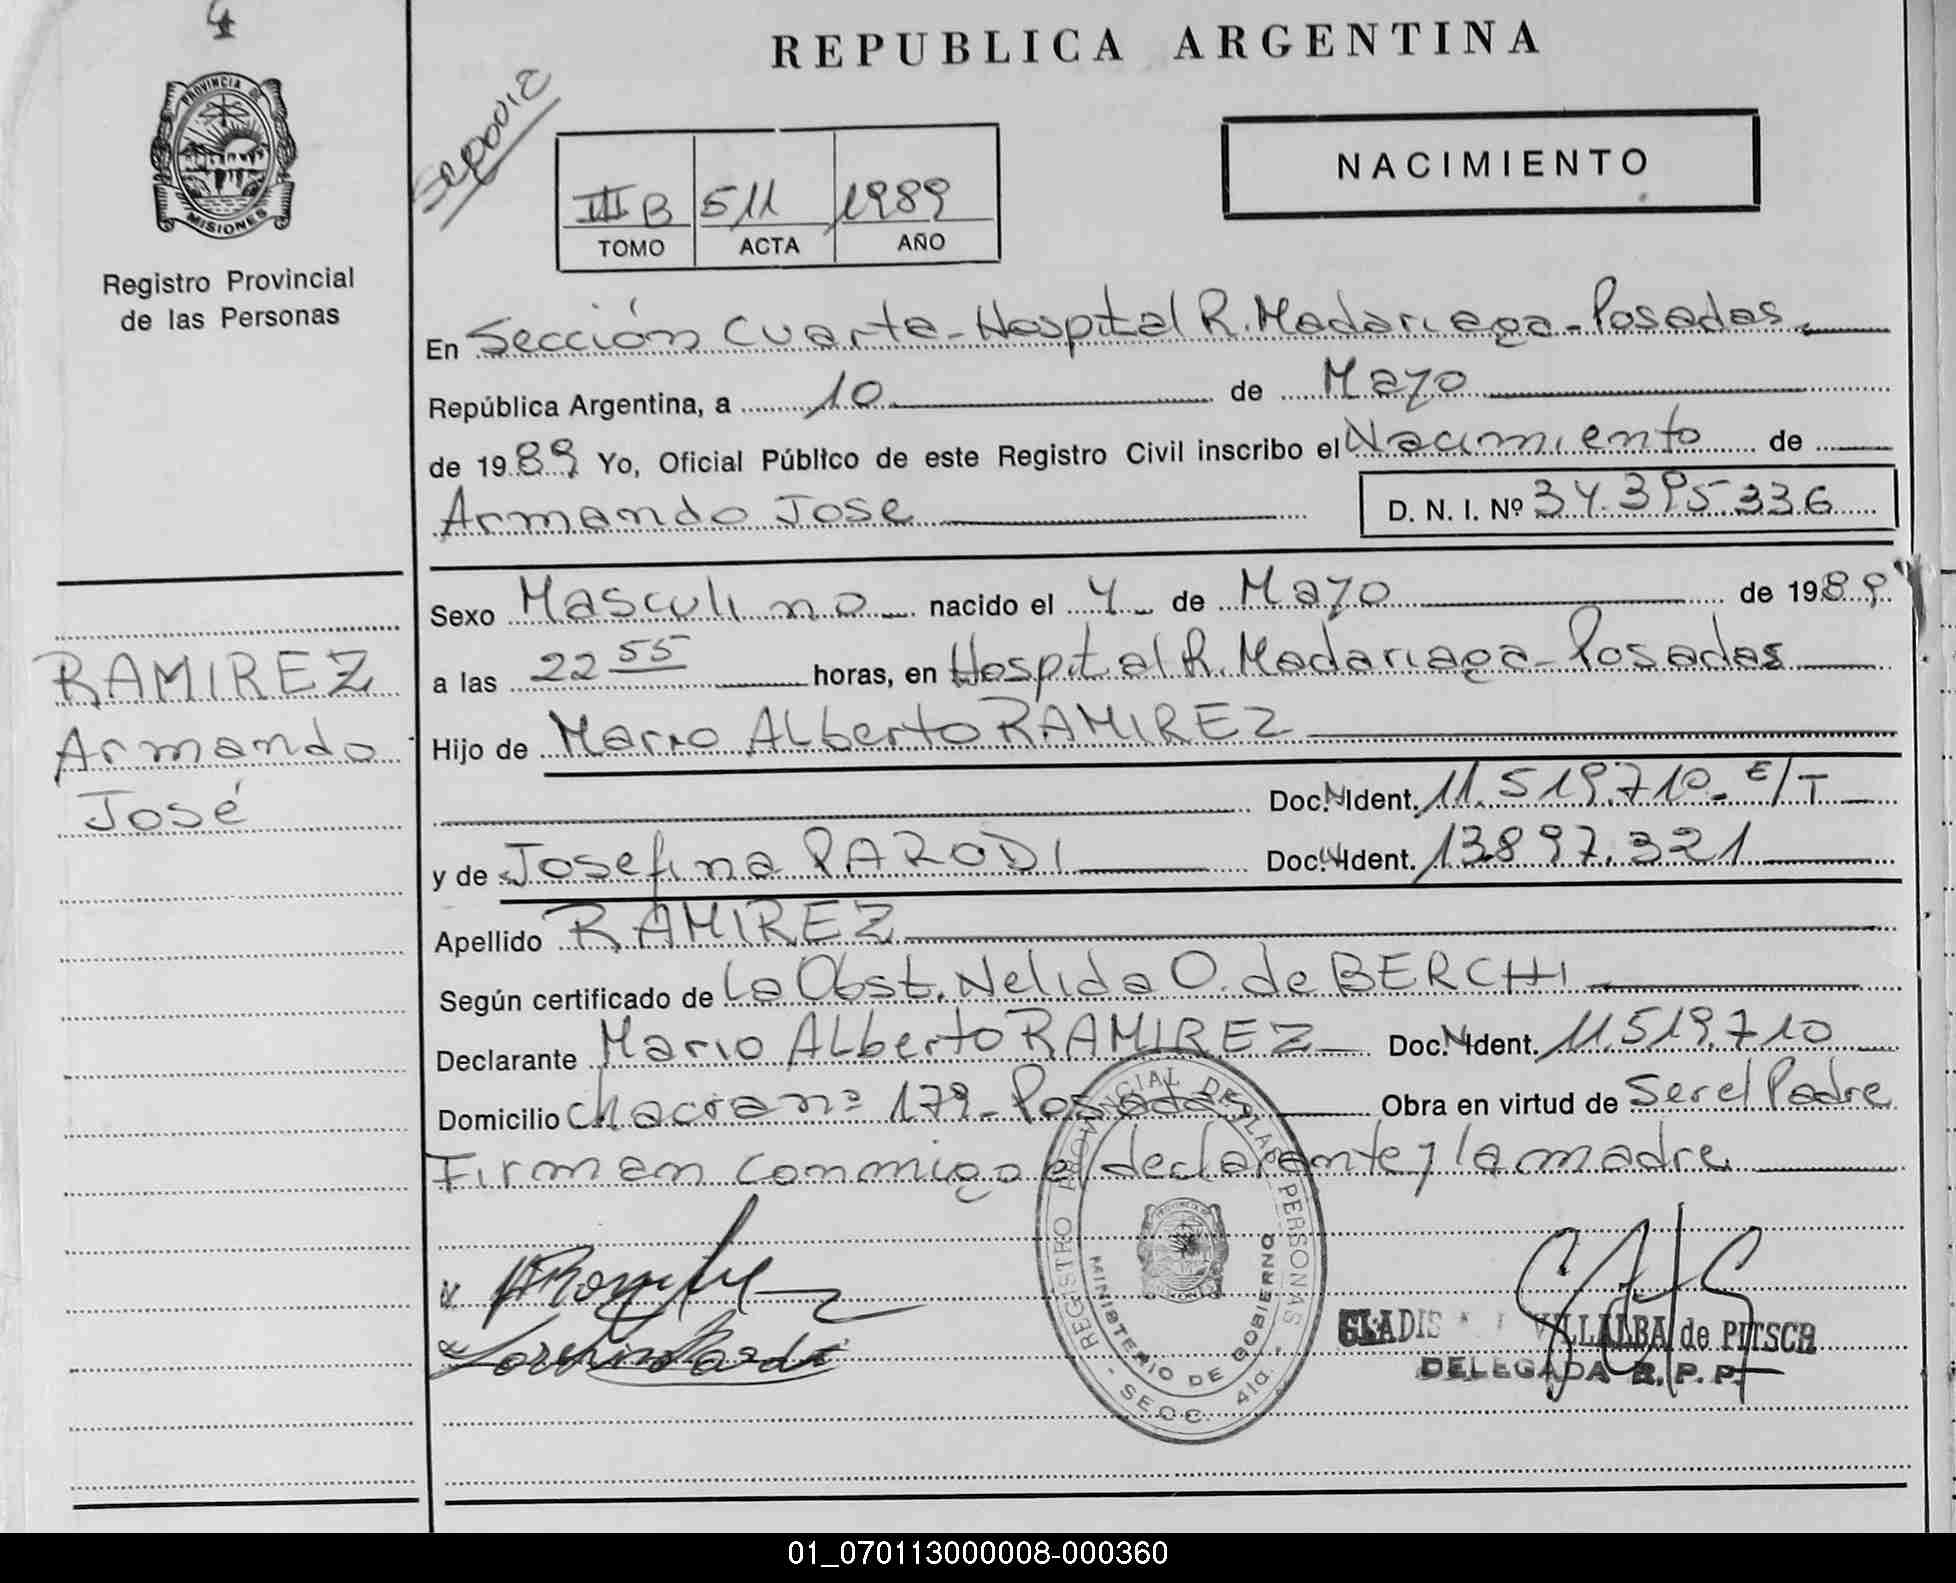 PROVINCIA DE MISIONES
Registro Provincial
de las Personas
RAMIREZ
Armando
José
REPUBLICA ARGENTINA
NACIMIENTO
III B 511 1989
TOMO ACTA AÑO
En Sección Cuarta - Hospital R. Madariaga - Posadas
República Argentina, a 10 de Mayo
de 1989 Yo, Oficial Público de este Registro Civil inscribo el Nacimiento de
Armando Jose D. N. I. Nº 34.395.336
Sexo Masculino nacido el 4 de Mayo de 1989
a las 22 55 horas, en Hospital R. Madariaga - Posadas
Hijo de Mario Alberto RAMIREZ
Doc. N Ident. 11.519.710 - E/T
y de Josefina PARODI Doc. N Ident. 13897.321
Apellido RAMIREZ
Según certificado de La Obst. Nelida O. de BERCHI
Declarante Mario Alberto RAMIREZ Doc. N Ident. 11.519.710
Domicilio Chacra nº 179 - Posadas Obra en virtud de Ser el Padre
Firman conmigo el declarante y la madre
REGISTRO PROVINCIAL DE LAS PERSONAS
MINISTERIO DE GOBIERNO
- SECC. 4ta. -
GLADIS VILLALBA de PITSCH
DELEGADA R. P. P.
01_070113000008-000360